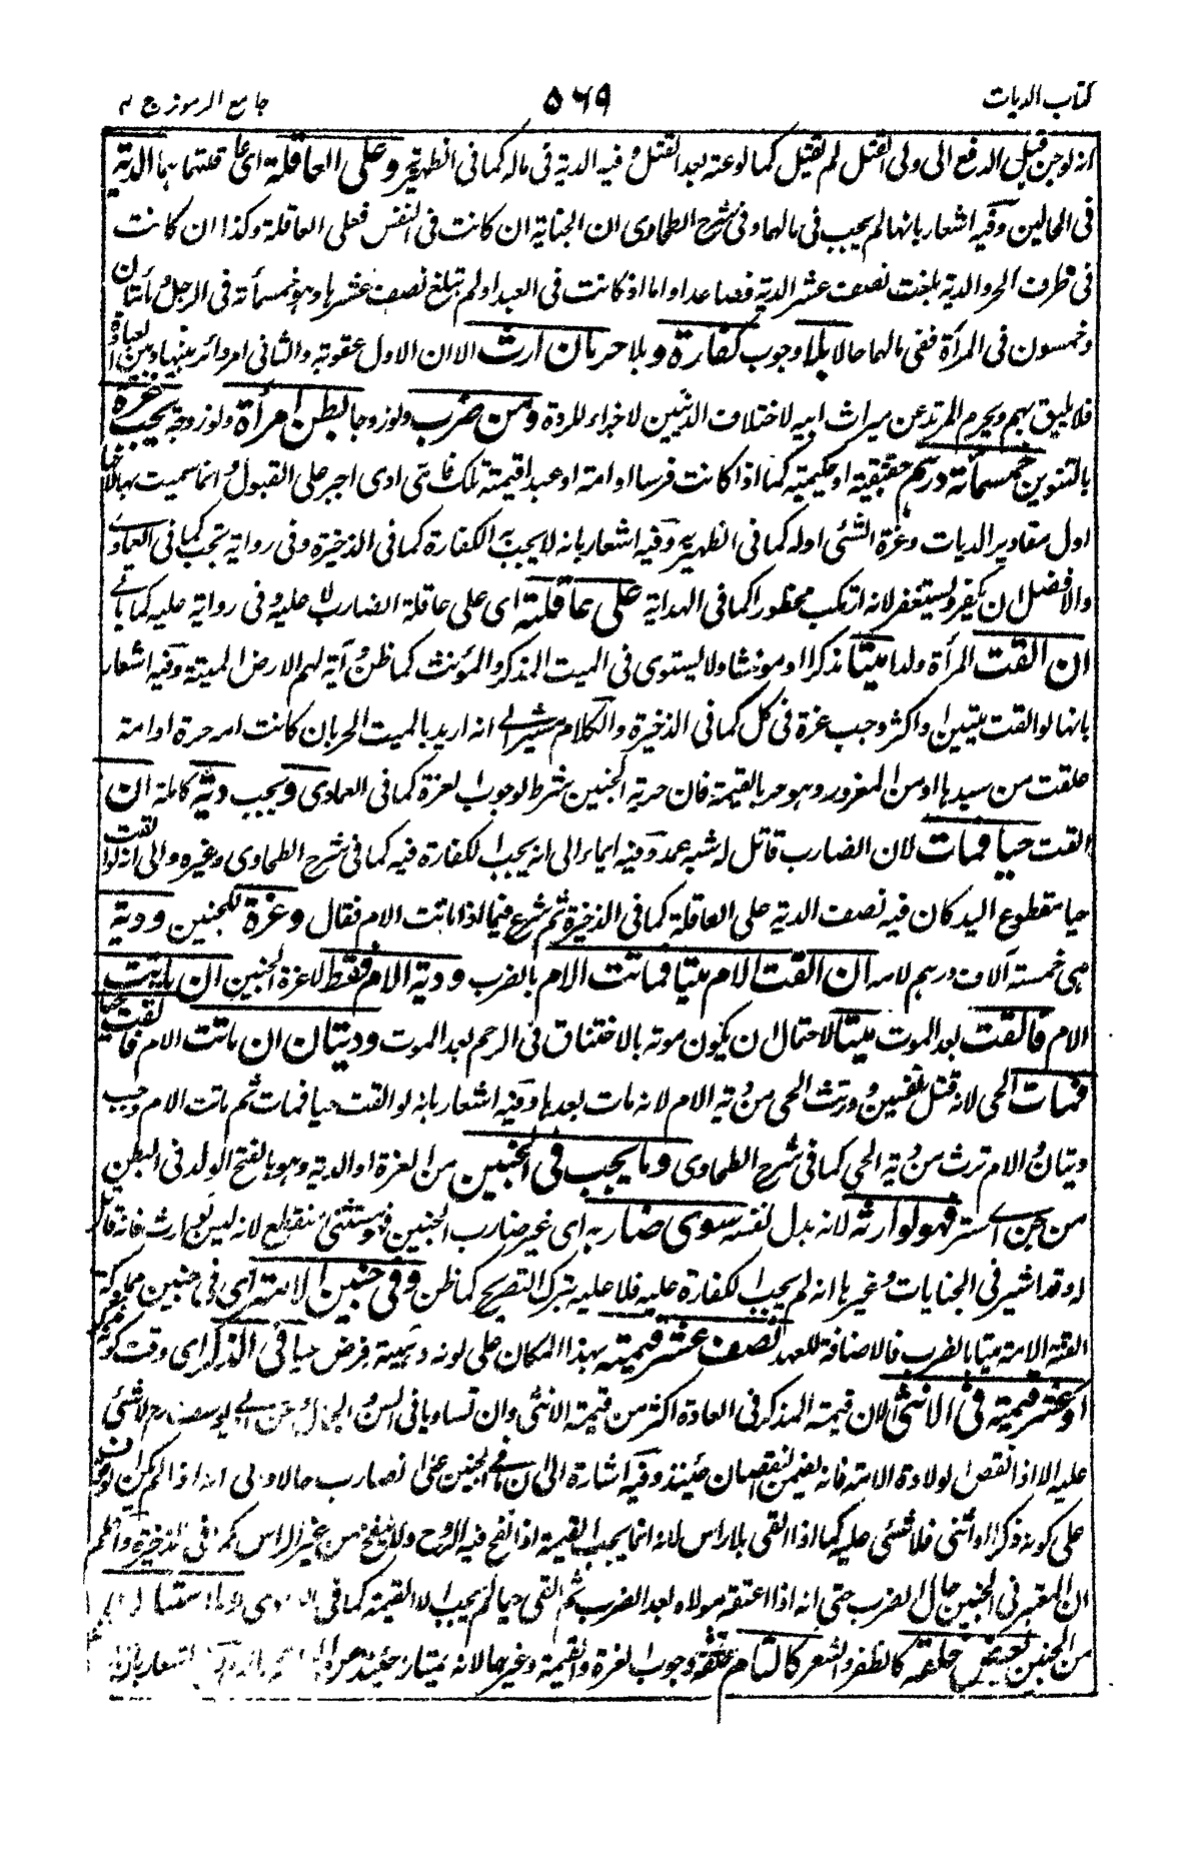 كتاب الديات ٥٦٩ جامع الرموز ج ٢
انه لو جن قبل الدفع الى ولى القتل لم يقتل كما لو عته بعد القتل وفيه الدية فى ماله كما فى الظهيرية وعلى العاقلة اى على عاقلتهما الدية
فى الحالين وفيه اشعار بانها لم يجب فى مالهما وفى شرح الطحاوى ان الجناية ان كانت فى النفس فعلى العاقلة وكذا ان كانت
فى طرف الحر والدية بلغت نصف عشر الدية فصاعدا واما اذا كانت فى العبد او لم تبلغ نصف عشرها وهو خمسمأئة فى الرجل ومأئتان
وخمسون فى المرأة ففى مالهما حالا بلا وجوب كفارة وبلا حرمان ارث الا ان الاول عقوبة والثانى امر دائر بينها وبين العبادة
فلا يليق بهم ويحرم المرتد عن ميراث ابيه لاختلاف الدينين لا جزاء للردة ومن ضرب ولو زوجا بطن امرأة ولو زوجة يجب غرة
بالتنوين خمسمأئة درهم حقيقية او حكمية كما اذا كانت فرسا او امة او عبدا قيمته تلك فاىّ ادى اجبر على القبول وانما سميت بها لانها
اول مقادير الديات وغرة الشئ اوله كما فى الظهيرية وفيه اشعار بانه لا يجب الكفارة كما فى الذخيرة وفى رواية تجب كما فى العمادى
والافضل ان يكفر ويستغفر لانه ارتكب محظورا كما فى الهداية على عاقلته اى على عاقلة الضارب لا عليه وفى رواية عليه كما يأتى
ان القت المرأة ولدا ميتا مذكرا او مؤنثا ولا يستوى فى الميت المذكر والمؤنث كما ظن وآية لهم الارض الميتة وفيه اشعار
بانها لو القت ميتين او اكثر وجب غرة فى كل كما فى الذخيرة والكلام مشير الى انه اريد بالميت الحر بان كانت امه حرة او امة
علقت من سيدها او من المغرور وهو حر بالقيمة فان حرية الجنين شرط لوجوب الغرة كما فى العمادى ويجب دية كاملة ان
القت حيا فمات لان الضارب قاتل له شبه عمد وفيه ايماء الى انه يجب الكفارة فيه كما فى شرح الطحاوى وغيره والى انه لو القت
حيا مقطوع اليد كان فيه نصف الدية على العاقلة كما فى الذخيرة ثم شرع فيما اذا ماتت الام فقال وغرة للجنين ودية
هى خمسة آلاف درهم لامه ان القت الام ميتا فماتت الام بالضرب ودية الام فقط لا غرة الجنين ان ماتت
الام فالقت بعد الموت ميتا لاحتمال ان يكون موته بالاختناق فى الرحم بعد الموت وديتان ان ماتت الام فالقت حيا
فمات الحى لانه قتل نفسين وورث الحى من دية الام لانه مات بعدها وفيه اشعار بانه لو القت حيا فمات ثم ماتت الام وجب
ديتان والام ترث من دية الحى كما فى شرح الطحاوى وما يجب فى الجنين من الغرة او الدية وهو بالفتح الولد فى البطن
من جن اى استتر فهو لوارثه لانه بدل نفسه سوى ضاربه اى غير ضارب الجنين فهو مستثنى منقطع لانه ليس بوارث فانه قاتل
له وقد اشير فى الجنايات وغيرها انه لم يجب الكفارة عليه فلا عليه بترك التصريح كما ظن وفى جنين الامة اى فى جنين مملوكة
القته الامة ميتا بالضرب فالاضافة للعهد نصف عشر قيمته بهذا المكان على لونه وهيئته بفرض حيا فى الذكر اى وقت كونه ذكرا
او عشر قيمته فى الانثى لان قيمة المذكر فى العادة اكثر من قيمة الانثى وان تساويا فى السن والجمال وعن ابى يوسف رح لا شئ
عليه الا اذا انقص الولادة الامة فانه يضمن النقصان حينئذ وفيه اشارة الى ان ما فى الجنين على الضارب حالا والى انه اذا لم يمكن الوقوف
على كونه ذكرا او انثى فلا شئ عليه كما اذا القى بلا راس لانه انما يجب القيمة اذا نفخ فيه الروح ولا ينفخ من غير الراس كما فى الذخيرة واعلم
ان المعتبر فى الجنين حال الضرب حتى انه اذا اعتقه مولاه بعد الضرب ثم القى حيا لم يجب الا القيمة كما فى
من الجنين بعض خلقه كالظفر والشعر كالتام خلقه فى وجوب الغرة والقيمة وغيرها لانه يمتاز حينئذ عن اشعار بانه